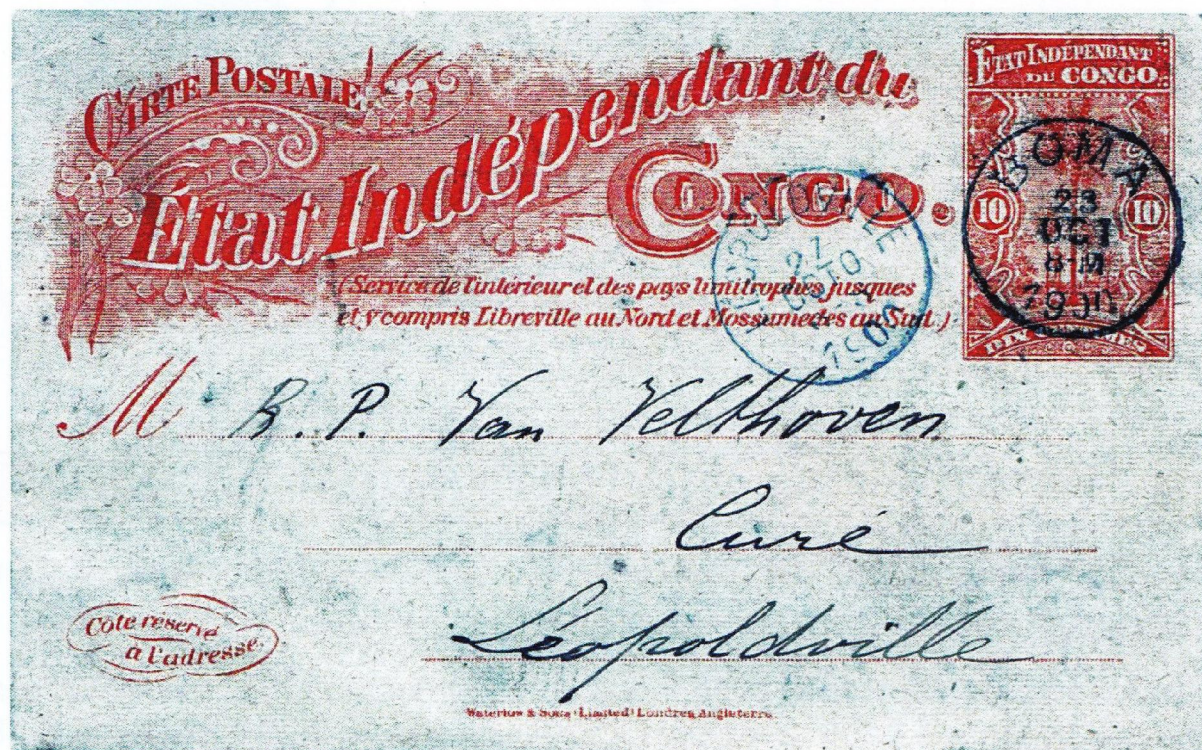 CARTE POSTALE
État Indépendant du
CONGO.
(Service de l'intérieur et des pays limitrophes jusques
et y compris Libreville au Nord et Mossamedes au Sud.)
ETAT INDÉPENDANT
DU CONGO
10 10
DIX CENTIMES
BOMA
23
OCT
8-M
1900
LEOPOLDVILLE
27
OCTO
1900
M R. P. Van Velthoven
Curé
Léopoldville
Côté réservé
à l'adresse.
Waterlow & Sons Limited Londres Angleterre.